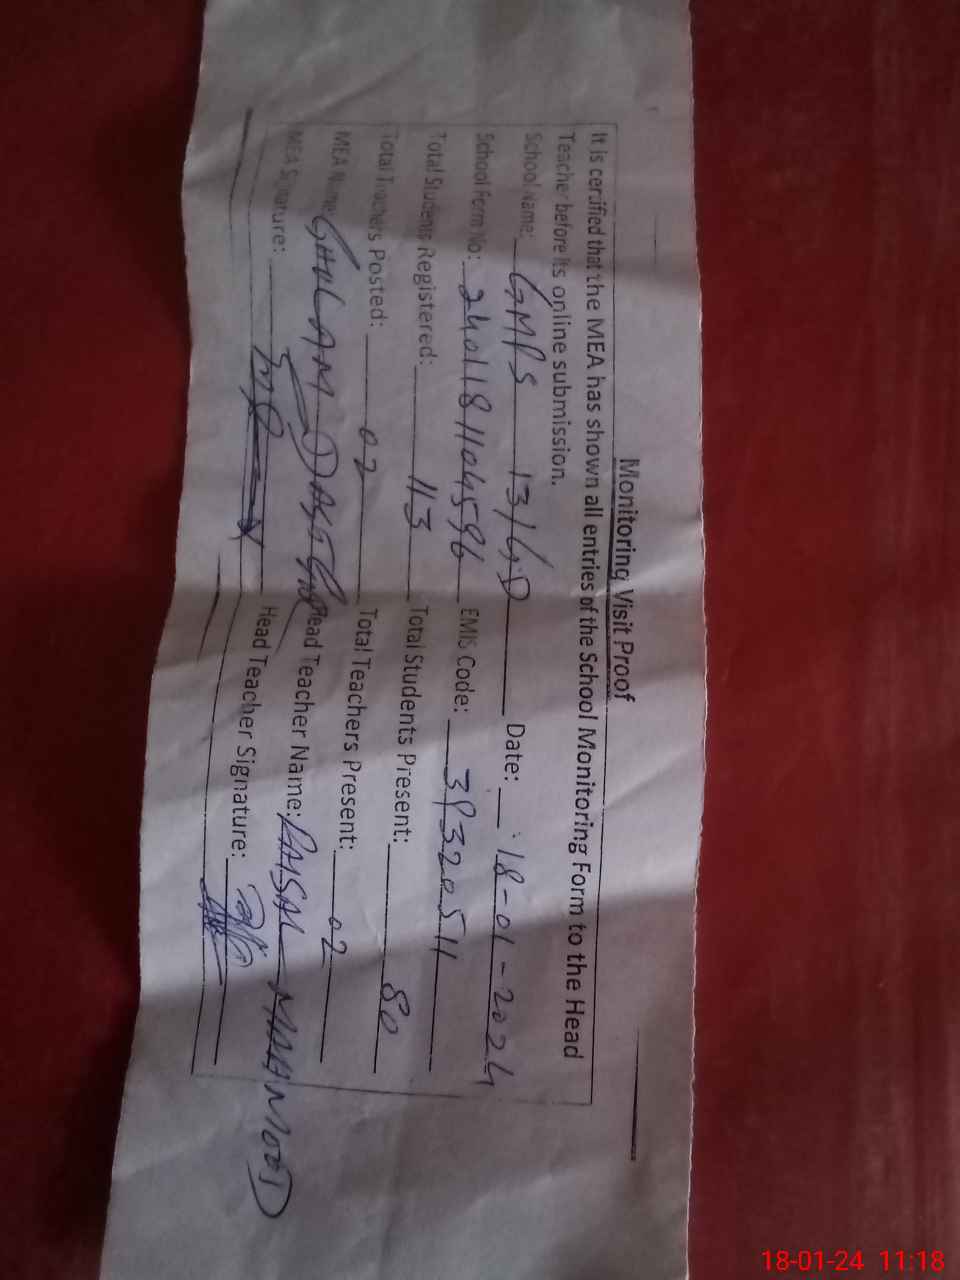 Monitoring Visit Proof
It is certified that the MEA has shown all entries of the School Monitoring Form to the Head
Teacher before its online submission.
School Name: GMPS 13/G.D Date: 18-01-2024
School Form No: 2401181104596 EMIS Code: 39320511
Total Students Registered: 113 Total Students Present: 80
Total Teachers Posted: 02 Total Teachers Present: 02
MEA Name: GHULAM DASTGIR Head Teacher Name: FAISAL MAHMOOD
MEA Signature: Head Teacher Signature:
18-01-24 11:18